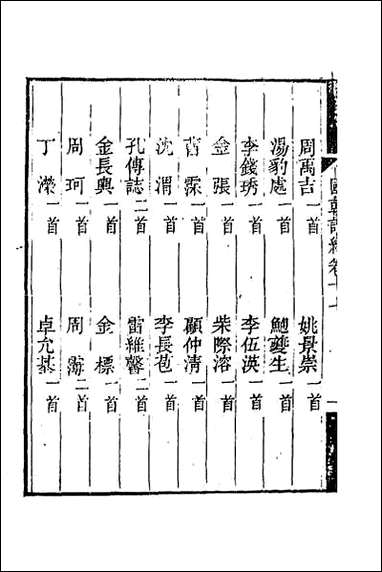 周禹吉一首 姚景崇一首
湯豹處一首 鮑夔生一首
李錢琇一首 李伍渶一首
金張一首 柴際溶一首
曹霂一首 顧仲清一首
沈渭一首 李長苞一首
孔傳誌二首 雷維馨二首
金長輿一首 金標一首
周珂一首 周 二首
丁濚一首 卓允基一首
國朝詩 卷十七 一